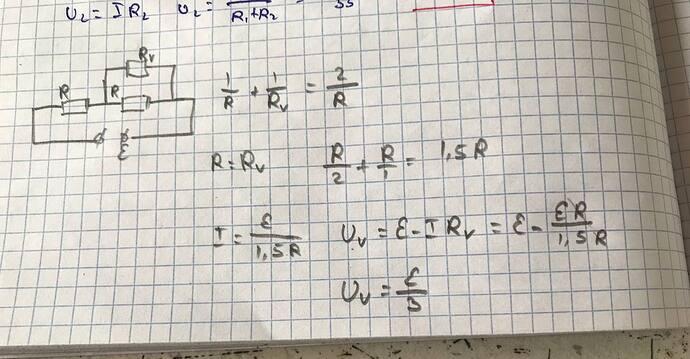 U₂ = I R₂ U₂ = R₁+R₂ 55
Rv
R R
ε
1/R + 1/Rv = 2/R
R = Rv R/2 + R/1 = 1,5R
I = ε/1,5R Uv = ε - I Rv = ε - εR/1,5R
Uv = ε/3